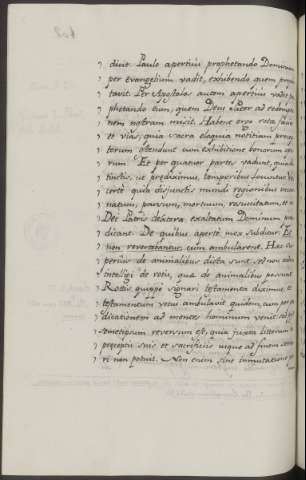 402
dicit Paulo apertius prophetando Dominum
per evangelium vadit, exhibendo quem pro
tavit. Per Apostolos autem apertius vadit
phetando eum, quem Deus Pater ad redemp
nem nostram misit. Habent ergo rota faciem
et vias, quia sacra eloquia notitiam præcep
torum ostendunt cum exhibitione bonorum ope
rum. Et per quatuor partes vadunt, quia
tinctis, ut prædiximus, temporibus loquuntur
certè quia disjunctis mundi regionibus incar
natum, passum, mortuum, resuscitatum, et a
Dei Patris dextera exaltatum Dominum præ
dicant. De quibus apertè mox subditur: Et
non revertebantur, cum ambularent. Hæc su
perius de animalibus dicta sunt, sed non
intelligi de rotis, quæ de animalibus possunt
Rotas quippe signari testamenta diximus, et
testamentum vetus ambulavit quidem, cum præ
dicationem ad mentes hominum venit: sed post
semetipsum reversum est, quia juxta litteram
præceptis suis et sacrificiis usque ad finem
ri non potuit. Non enim sine immutatione